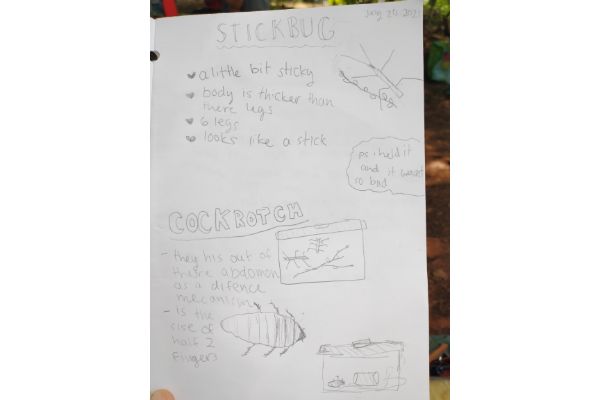 STICKBUG
July 26 2021
a little bit sticky
body is thicker than
there legs
6 legs
looks like a stick
ps i held it
and it wasnt
so bad
COCKROTCH
- they his out of
there abdomon
as a difence
mecanism
- is the
sise of
half 2
fingers